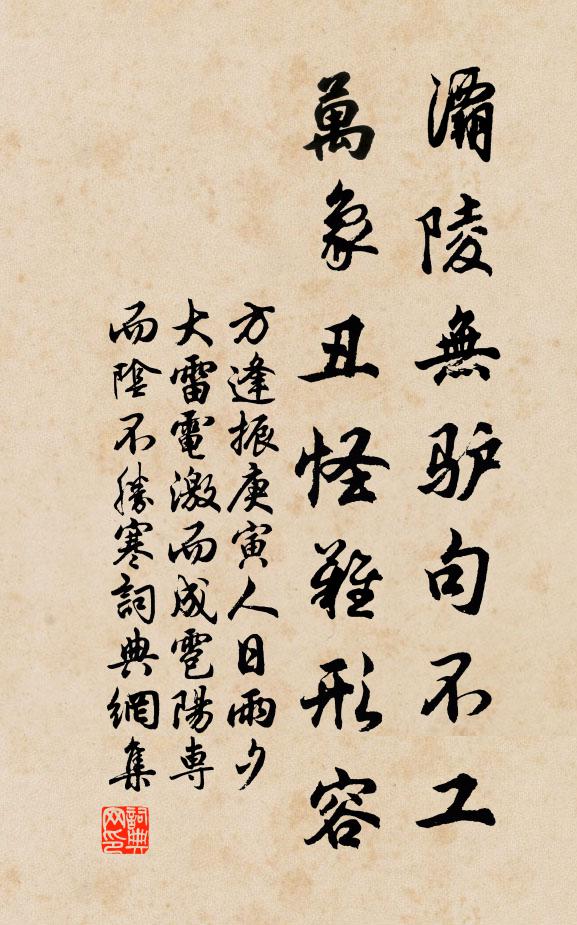 灞陵無驴句不工
萬象丑怪難形容
方逢振庚寅人日雨夕
大雷電激而成雹陽専
而陰不勝寒詞典網集
詞典
网印